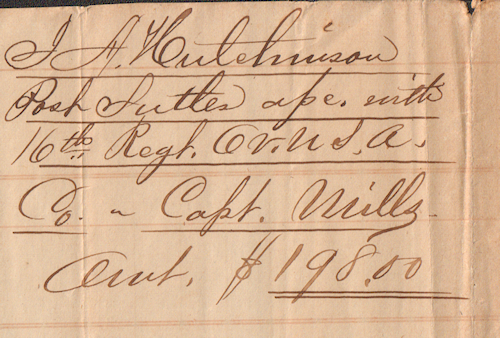 J A. Hutchinson
Post Sutler a/c. with
16th Regt. O.V. U.S.A.
Co. " Capt. Mills
Amt. $198.00